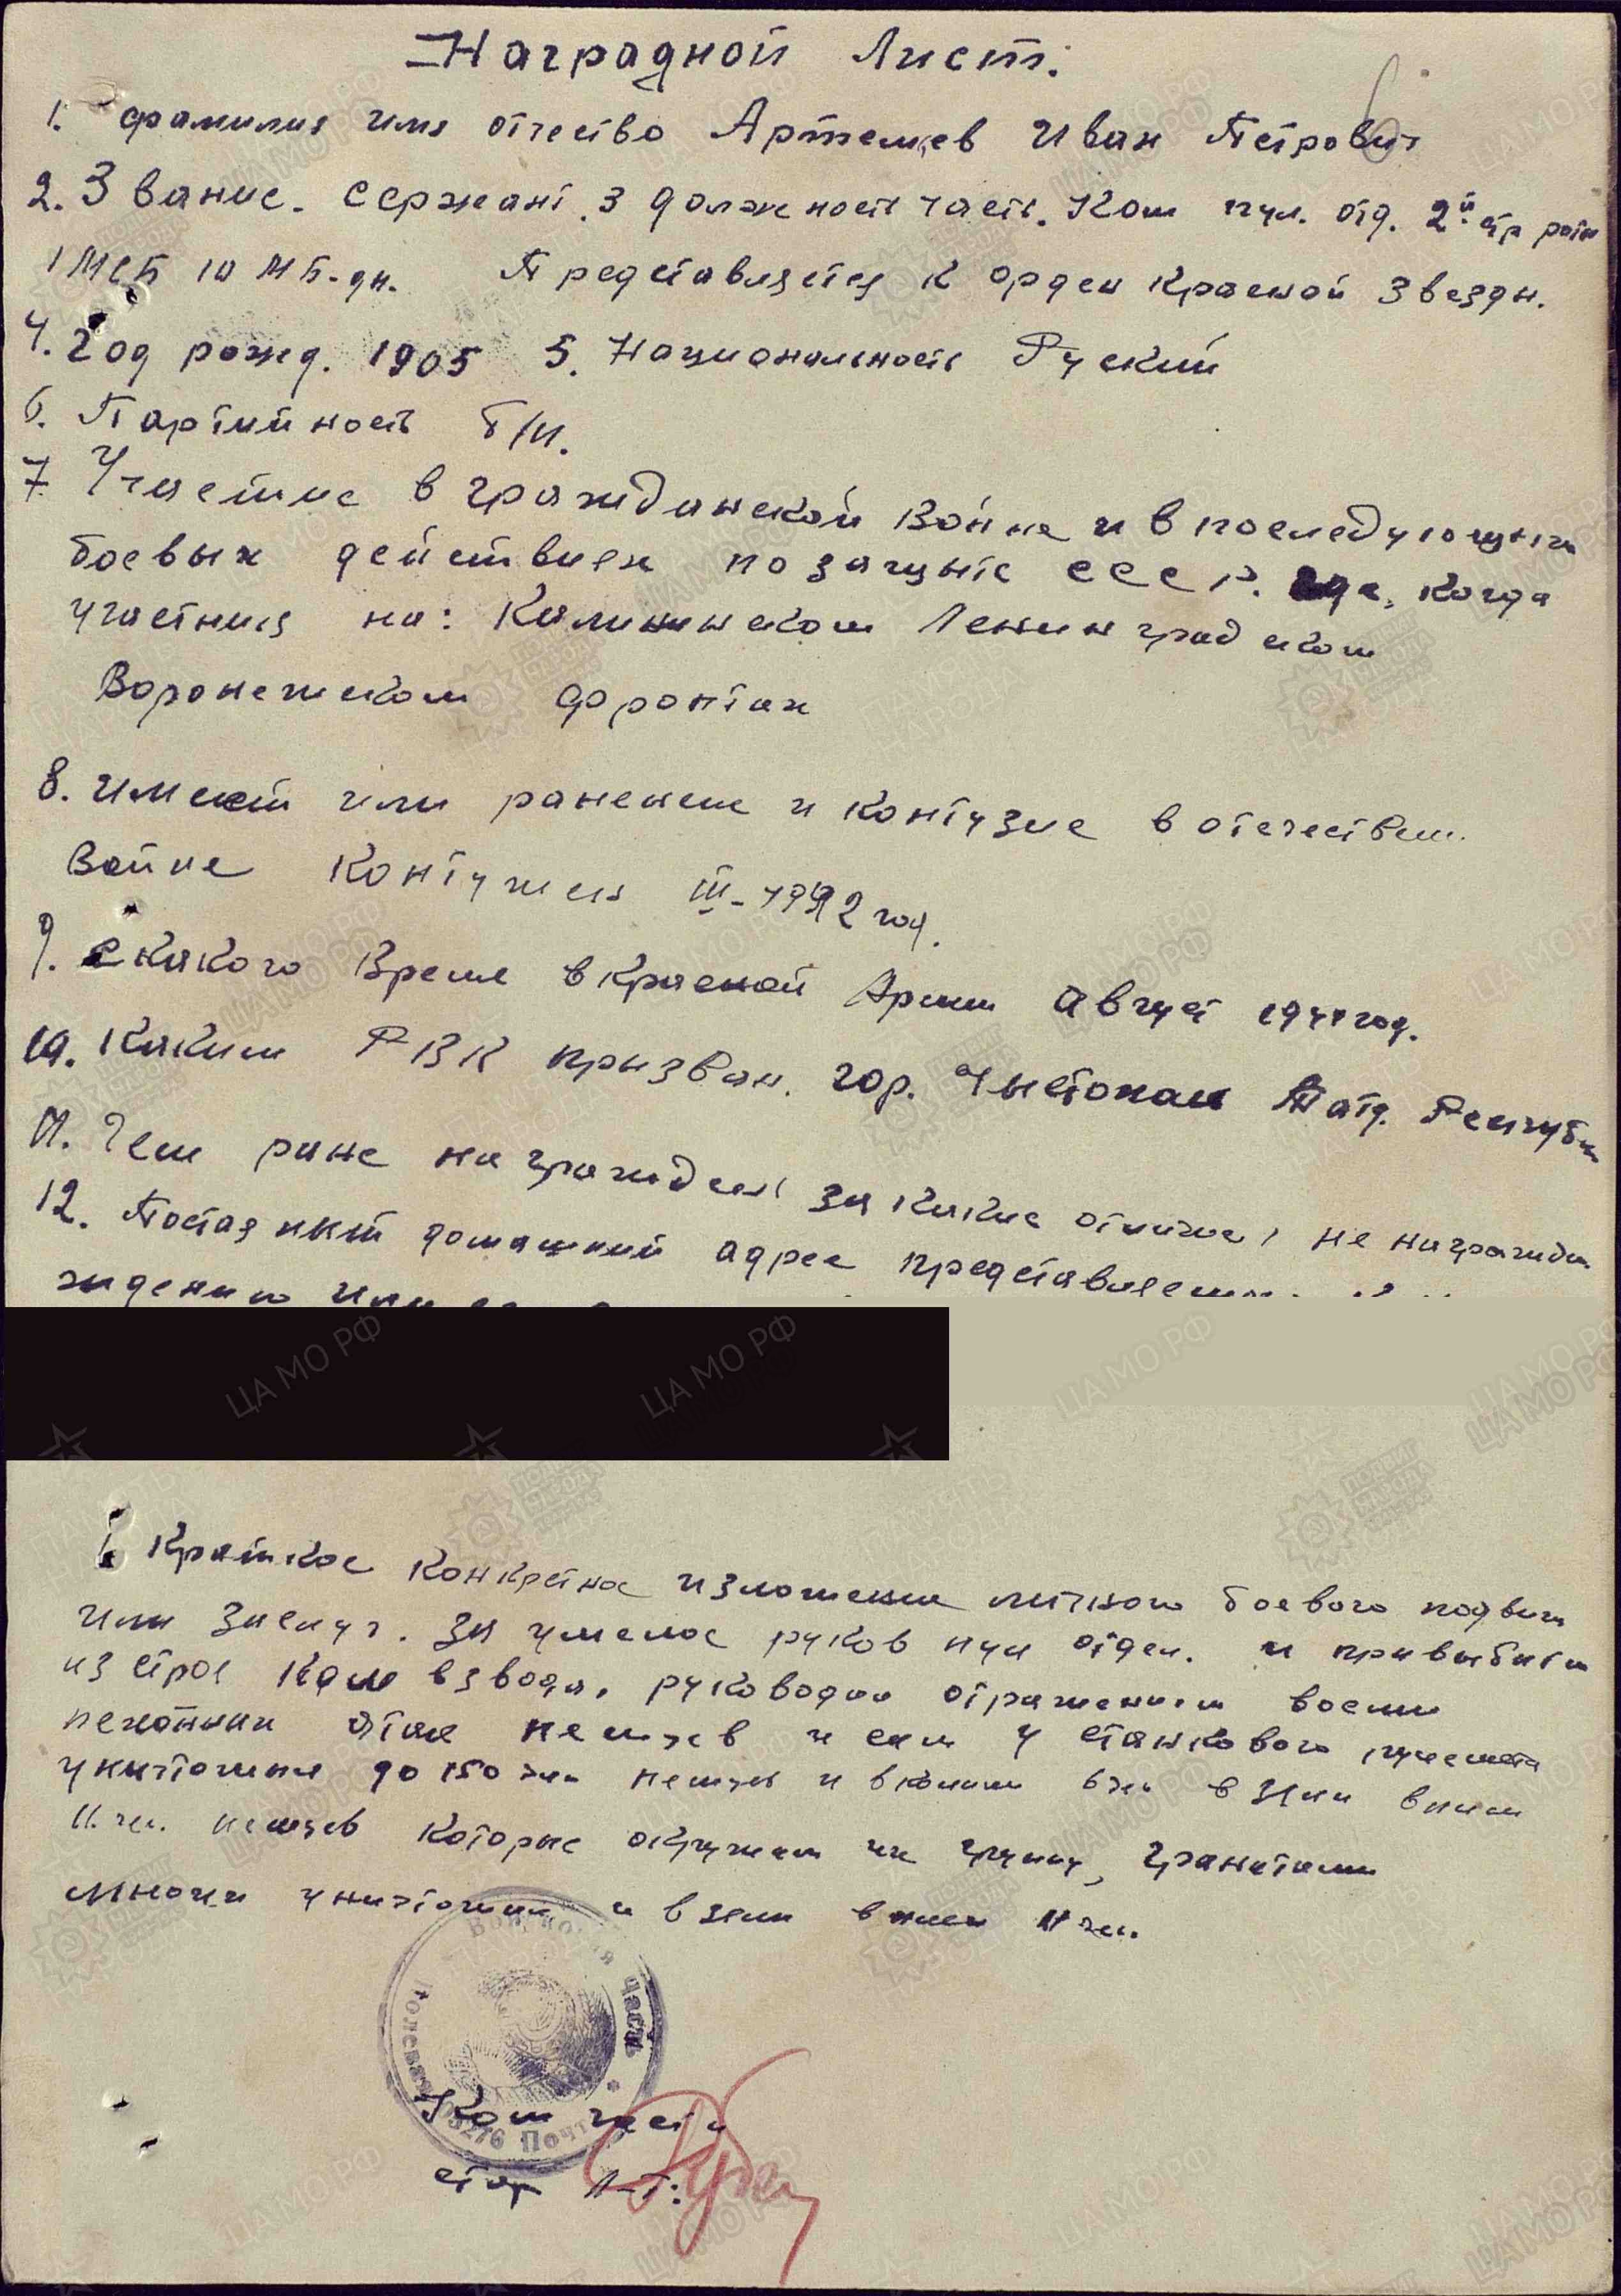 Наградной Лист.
1. фамилия имя отчество Артемьев Иван Петрович
2. Звание. сержант. 3 должность часть. Ком пул. отд. 2й стр роты
1 МСБ 10 МБ-дн. Представляется к орден Красной Звезды.
4. Год рожд. 1905 5. Национальность Руский
6. Партийность б/п.
7. Участие в гражданской войне и в последующих
боевых действиях по защите СССР. где, когда
участния на: Калининском Ленинградском
Воронежском фронтах
8. имеет или ранение и контузие в отечествен.
Войне Контужен III-1942 год.
9. с какого Время в Красной Армии Август 1941 год.
10. Каким РВК призван. гор. Чыстопал Татр. Республ
11. Чем ране награжден за какие отличие, не награжден
12. Постояный домашний адрес представляемого к
ждению или
Краткое конкретное изложение личного боевого подвига
или заслуг. За умелое руков пул отдел. и при выбытии
из строе ком взвода, руководил отражением восьми
пехотных атак немцев и сам у станкового пулемета
уничтожил до 150 чел немцев и взяли в плен
11 чел. немцев которые окружили их группу, гранатами
уничтожили и взяли в плен 11 чел.
Войсковая часть * Полевая Почта 05276
Ком части
стар л-т: